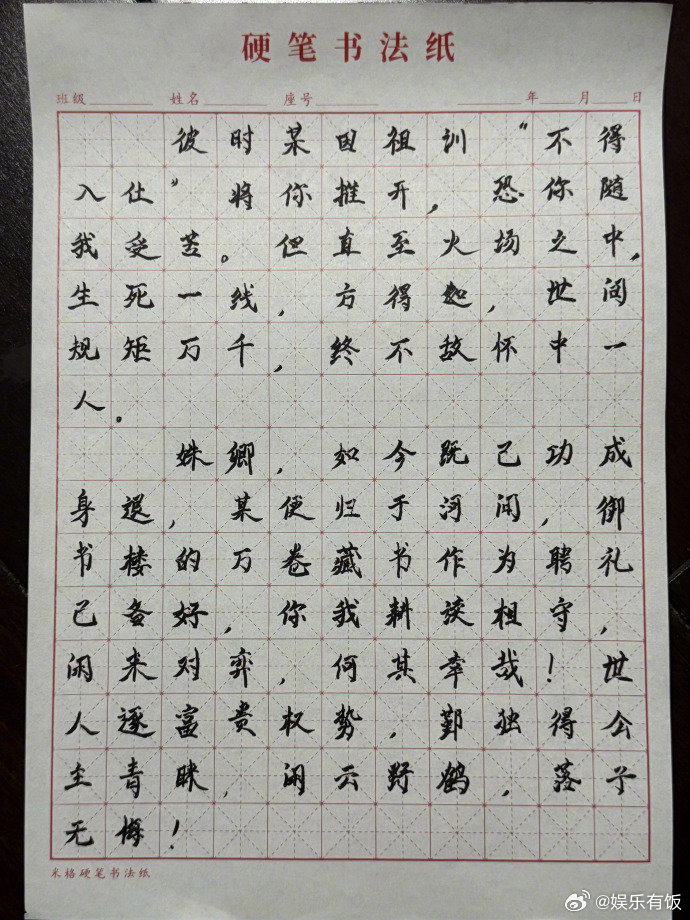 硬笔书法纸
班级 姓名 座号 年 月 日
彼时某因祖训“不得
入仕”将你推开，恐你随
我受苦。但直至火场之中，
生死一线，方得知，世间
规矩万千，终不敌怀中一
人。
姝卿，如今既已功成
身退，某便归于河间，御
书楼的万卷藏书作为聘礼
已备好，你我耕读相守，
闲来对弈，何其幸哉！世
人逐富贵权势，鄞独得公
主青睐，闲云野鹤，落子
无悔！
米格硬笔书法纸
@娱乐有饭